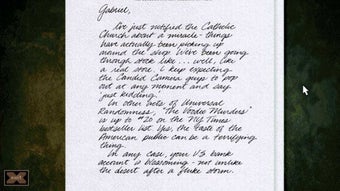 Gabriel,
I've just notified the Catholic
Church about a miracle - things
have actually been picking up
around the shop. We've been going
through stock like... well, like
a real store. I keep expecting
the Candid Camera guys to pop
out at any moment and say
"just kidding."
In other acts of Universal
Randomness, "The Voodoo Murders"
is up to #20 on the NY Times
bestseller list. Yes, the taste of the
American public can be a terrifying
thing.
In any case, your U.S. bank
account is blossoming - not unlike
the desert after a fluke storm.